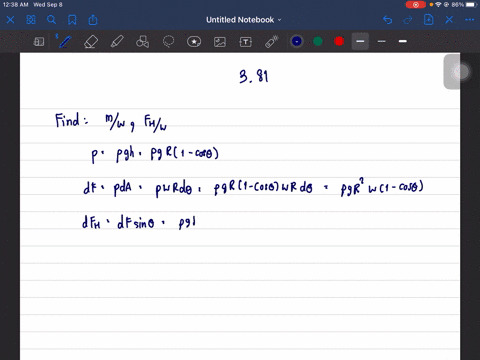 12:38 AM Wed Sep 8
86%
Untitled Notebook
3.81
Find: m/w, FH/w
p = ρgh = ρgR(1-cosθ)
dF = pdA = pwRdθ = ρgR(1-cosθ)wRdθ = ρgR²w(1-cosθ)
dFH = dF sinθ = ρg